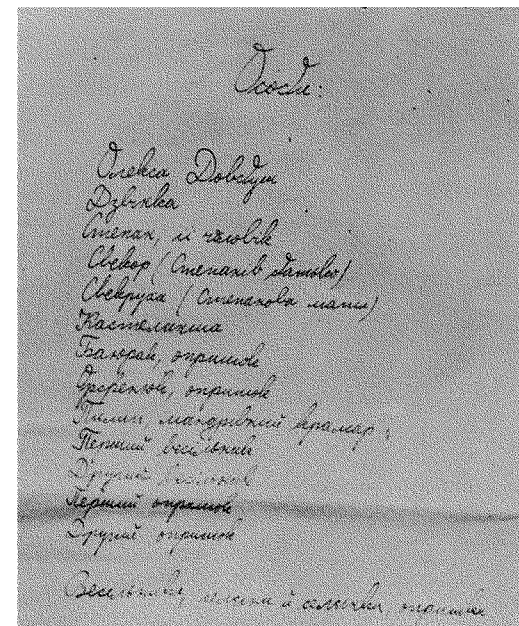 Особи:
Олекса Довбуш
Дзвінка
Степан, її чоловік
Свекор (Степанів батько)
Свекруха (Степанова мати)
Каштелянша
Баюрак, опришок
опришок
Пилип, мандрівний крамар
Перший весільний
Другий весільний
Перший опришок
Другий опришок
Весільні, опришки